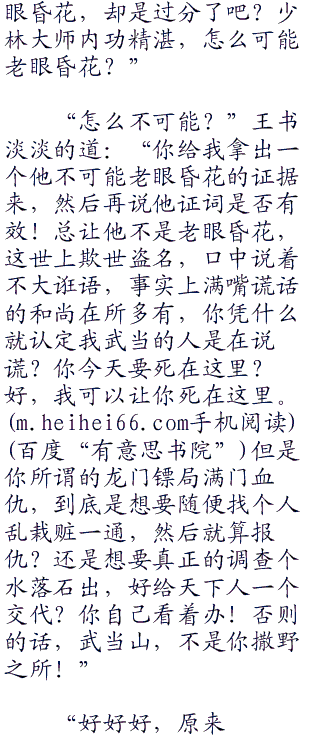 眼昏花，却是过分了吧？少
林大师内功精湛，怎么可能
老眼昏花？”
“怎么不可能？”王书
淡淡的道：“你给我拿出一
个他不可能老眼昏花的证据
来，然后再说他证词是否有
效！总让他不是老眼昏花，
这世上欺世盗名，口中说着
不大诳语，事实上满嘴谎话
的和尚在所多有，你凭什么
就认定我武当的人是在说
谎？你今天要死在这里？
好，我可以让你死在这里。
(m.heihei66.com手机阅读)
(百度“有意思书院”)但是
你所谓的龙门镖局满门血
仇，到底是想要随便找个人
乱栽赃一通，然后就算报
仇？还是想要真正的调查个
水落石出，好给天下人一个
交代？你自己看着办！否则
的话，武当山，不是你撒野
之所！”
“好好好，原来